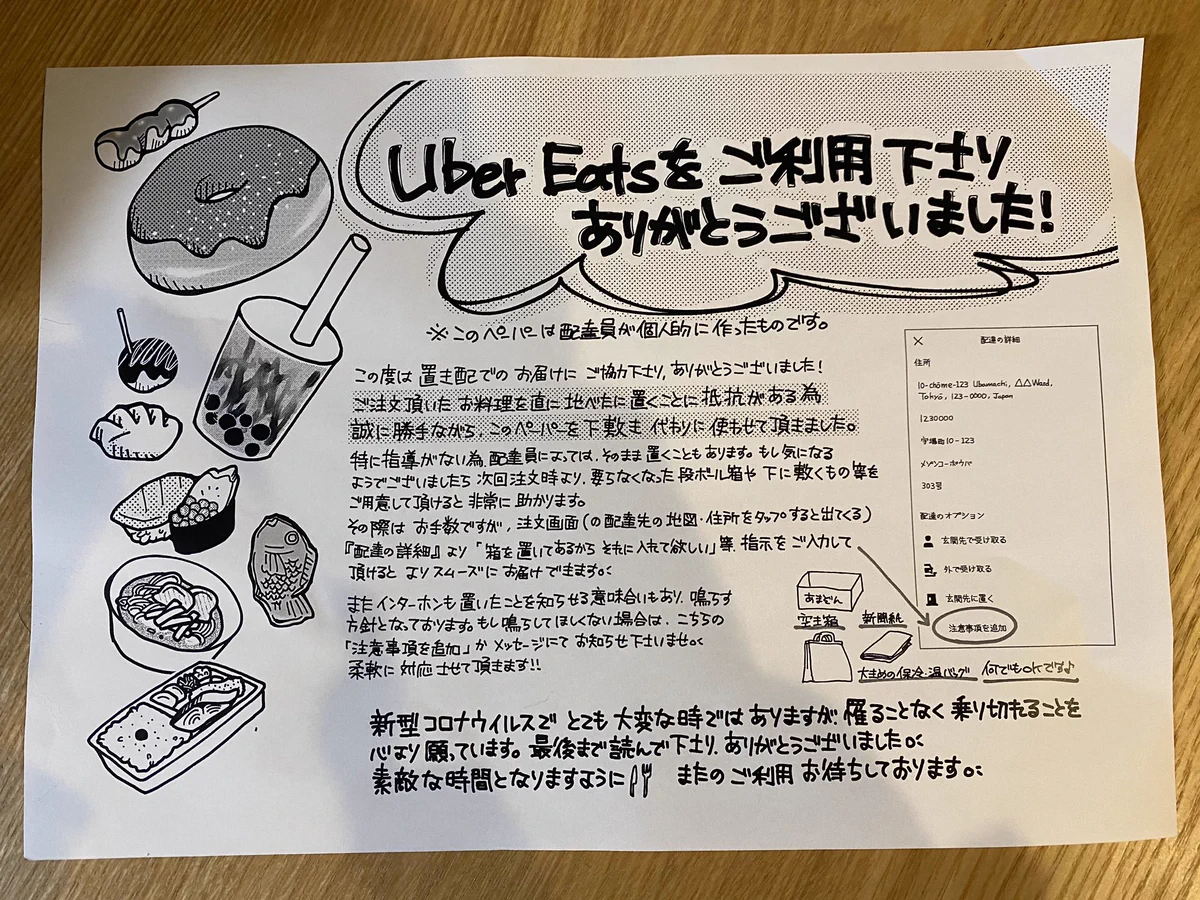 Uber Eatsを ご利用 下さり
ありがとうございました!
※このペーパーは配達員が個人的に作ったものです。
この度は 置き配での お届けに ご協力下さり、ありがとうございました!
ご注文頂いた お料理を直に地べたに置くことに抵抗がある為
誠に勝手ながら、このペーパーを下敷き代わりに使わせて頂きました。
特に指導がない為、配達員によっては、そのまま置くこともあります。もし気になる
ようでございましたら 次回注文時より、要らなくなった段ボール箱や 下に敷くもの等を
ご用意して頂けると 非常に 助かります。
その際は お手数ですが、注文画面(の配達先の地図・住所をタップすると出てくる)
『配達の詳細』より「箱を置いてあるから それに入れて欲しい」等、指示を ご入力して
頂けると よりスムーズに お届けできます。
またインターホンも置いたことを知らせる意味合いもあり、鳴らす
方針となっております。もし鳴らしてほしくない場合は、こちらの
「注意事項を追加」か メッセージにて お知らせ下さいませ。
柔軟に 対応させて頂きます!!
新型コロナウイルスで とても 大変な時ではありますが、罹ることなく乗り切れることを
心より願っています。最後まで読んで下さり、ありがとうございました。
素敵な時間となりますように
またの ご利用 お待ちしております。
× 配達の詳細
住所
10-chōme-123 Ubamachi, △△Ward,
Tokyo, 123-0000, Japan
1230000
宇場町10-123
メゾンコーポウバ
303号
配達のオプション
玄関先で受け取る
外で受け取る
玄関先に置く
注意事項を追加
あまどん
空き箱
新聞紙
大きめの保冷・温バッグ
何でもOKです♪